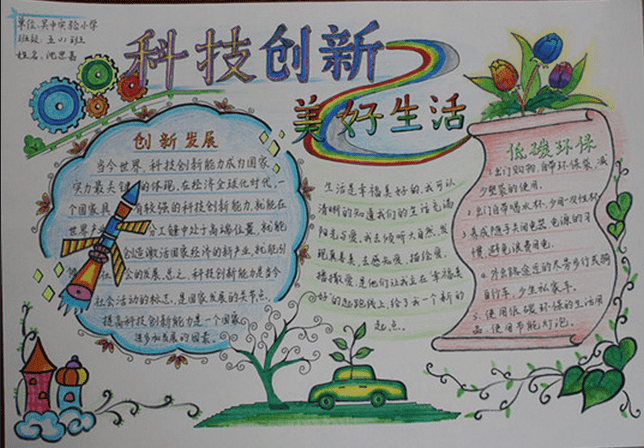 单位:吴中实验小学
班级:五(4)班
姓名:沈思嘉
科技创新
美好生活
创新发展
当今世界,科技创新能力成为国家
实力最关键的体现。在经济全球化时代,一
个国家具有较强的科技创新能力,就能在
世界产业分工链中处于高端位置,就能
创造激活国家经济的新产业,就能引
社会的发展。总之,科技创新能力是当今
社会活动的标志,是国家发展的关节点,
提高科技创新能力是一个国家
进步和发展的因素。
生活是幸福美好的,我可以
清晰的知道我们的生活充满
阳光与爱。我去倾听大自然,发
现真善美,去感知爱,描绘爱,
播撒爱,是他们让我立在“幸福美
好”的起跑线上,给予我一个新的
起点。
低碳环保
1.出门购物,自带环保袋,减
少塑袋的使用。
2.出门自带喝水杯,少用一次性杯
3.养成随手关闭电器电源的习
惯,避免浪费用电。
4.外出路途近的尽量步行或骑
自行车,少坐私家车。
5.使用低碳环保的生活用
品,使用节能灯泡。